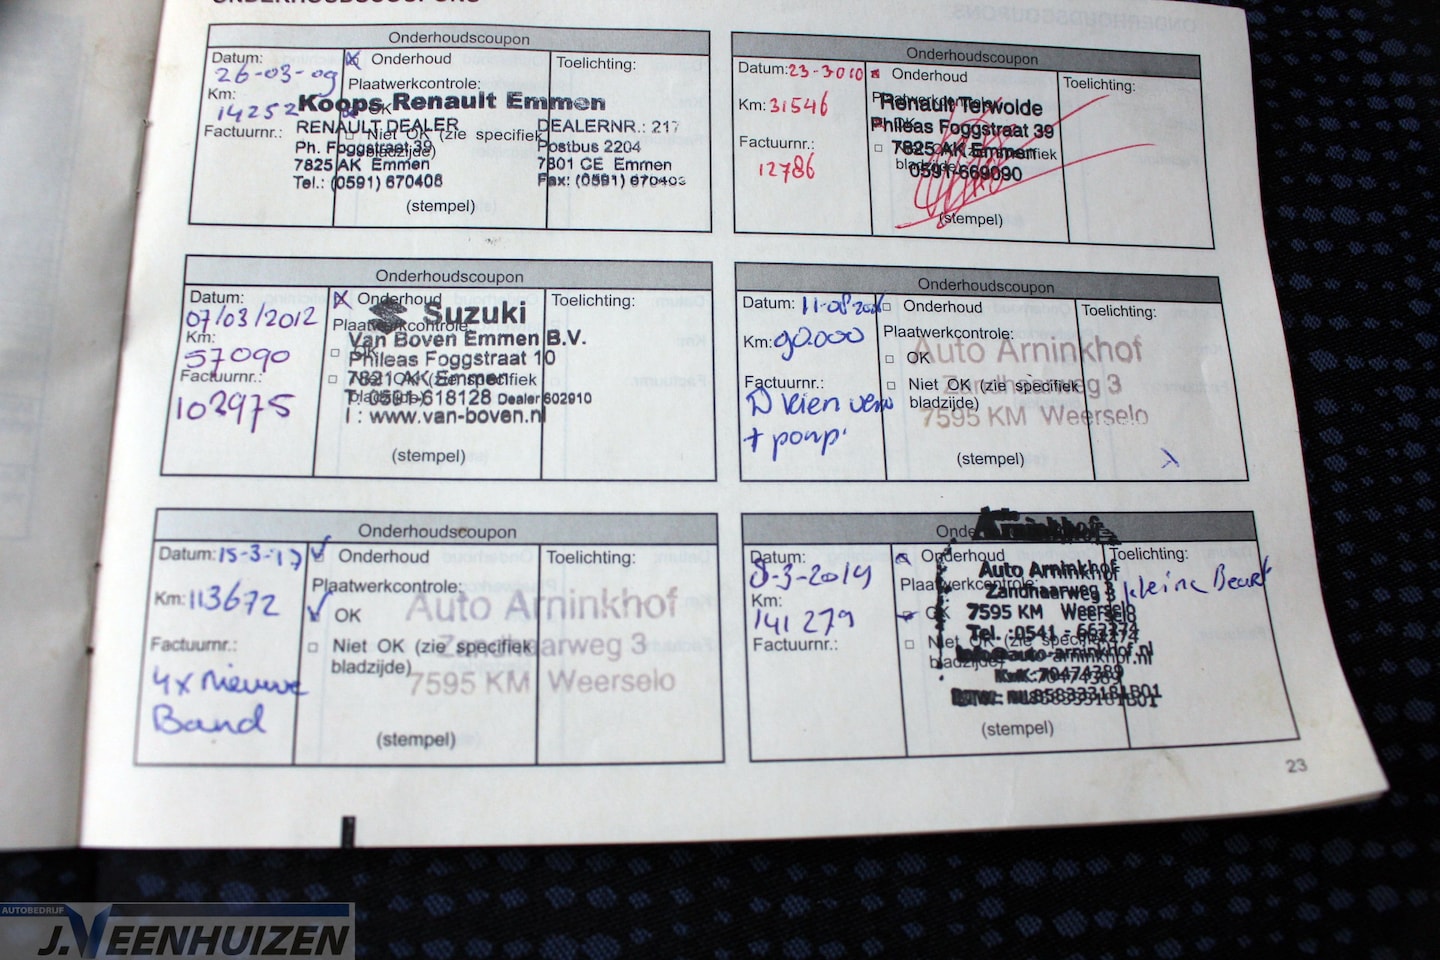 ONDERHOUDSCOUPONS
Onderhoudscoupon
Datum: 26-03-09
Onderhoud
Toelichting:
Km: 14252
Plaatwerkcontrole:
OK
Factuurnr.:
Niet OK (zie specifiek
bladzijde)
Koops Renault Emmen
RENAULT DEALER DEALERNR.: 217
Ph. Foggstraat 39 Postbus 2204
7825 AK Emmen 7801 CE Emmen
Tel.: (0591) 670408 Fax: (0591) 670403
(stempel)
Onderhoudscoupon
Datum: 23-3-2010
Onderhoud
Toelichting:
Km: 31546
Factuurnr.:
12786
Renault Terwolde
Phileas Foggstraat 39
7825 AK Emmen
0591-669090
bladzijde)
(stempel)
Onderhoudscoupon
Datum:
07/03/2012
Onderhoud
Toelichting:
Km:
57090
Plaatwerkcontrole:
Factuurnr.:
103975
Suzuki
Van Boven Emmen B.V.
Phileas Foggstraat 10
7821 AK Emmen
T: 0591-618128 Dealer 602910
I : www.van-boven.nl
(stempel)
Onderhoudscoupon
Datum:
Onderhoud
Toelichting:
Km: 90.000
Plaatwerkcontrole:
OK
Factuurnr.:
Niet OK (zie specifiek
bladzijde)
+ pomp.
Auto Arninkhof
Zandhaarweg 3
7595 KM Weerselo
(stempel)
Onderhoudscoupon
Datum: 15-3-17
Onderhoud
Toelichting:
Km: 113672
Plaatwerkcontrole:
OK
Factuurnr.:
Niet OK (zie specifiek
bladzijde)
4x nieuwe
Band
Auto Arninkhof
Zandhaarweg 3
7595 KM Weerselo
(stempel)
Datum:
8-3-2019
Onderhoud
Toelichting:
kleine Beurt
Km:
141279
Plaatwerkcontrole:
OK
Factuurnr.:
Niet OK (zie specifiek
bladzijde)
Arninkhof
Auto Arninkhof
Zandhaarweg 3
7595 KM Weerselo
Tel. :0541 - 
info@auto-arninkhof.nl
KvK:70474389
BTW: NL858333181B01
(stempel)
23
AUTOBEDRIJF
J. VEENHUIZEN